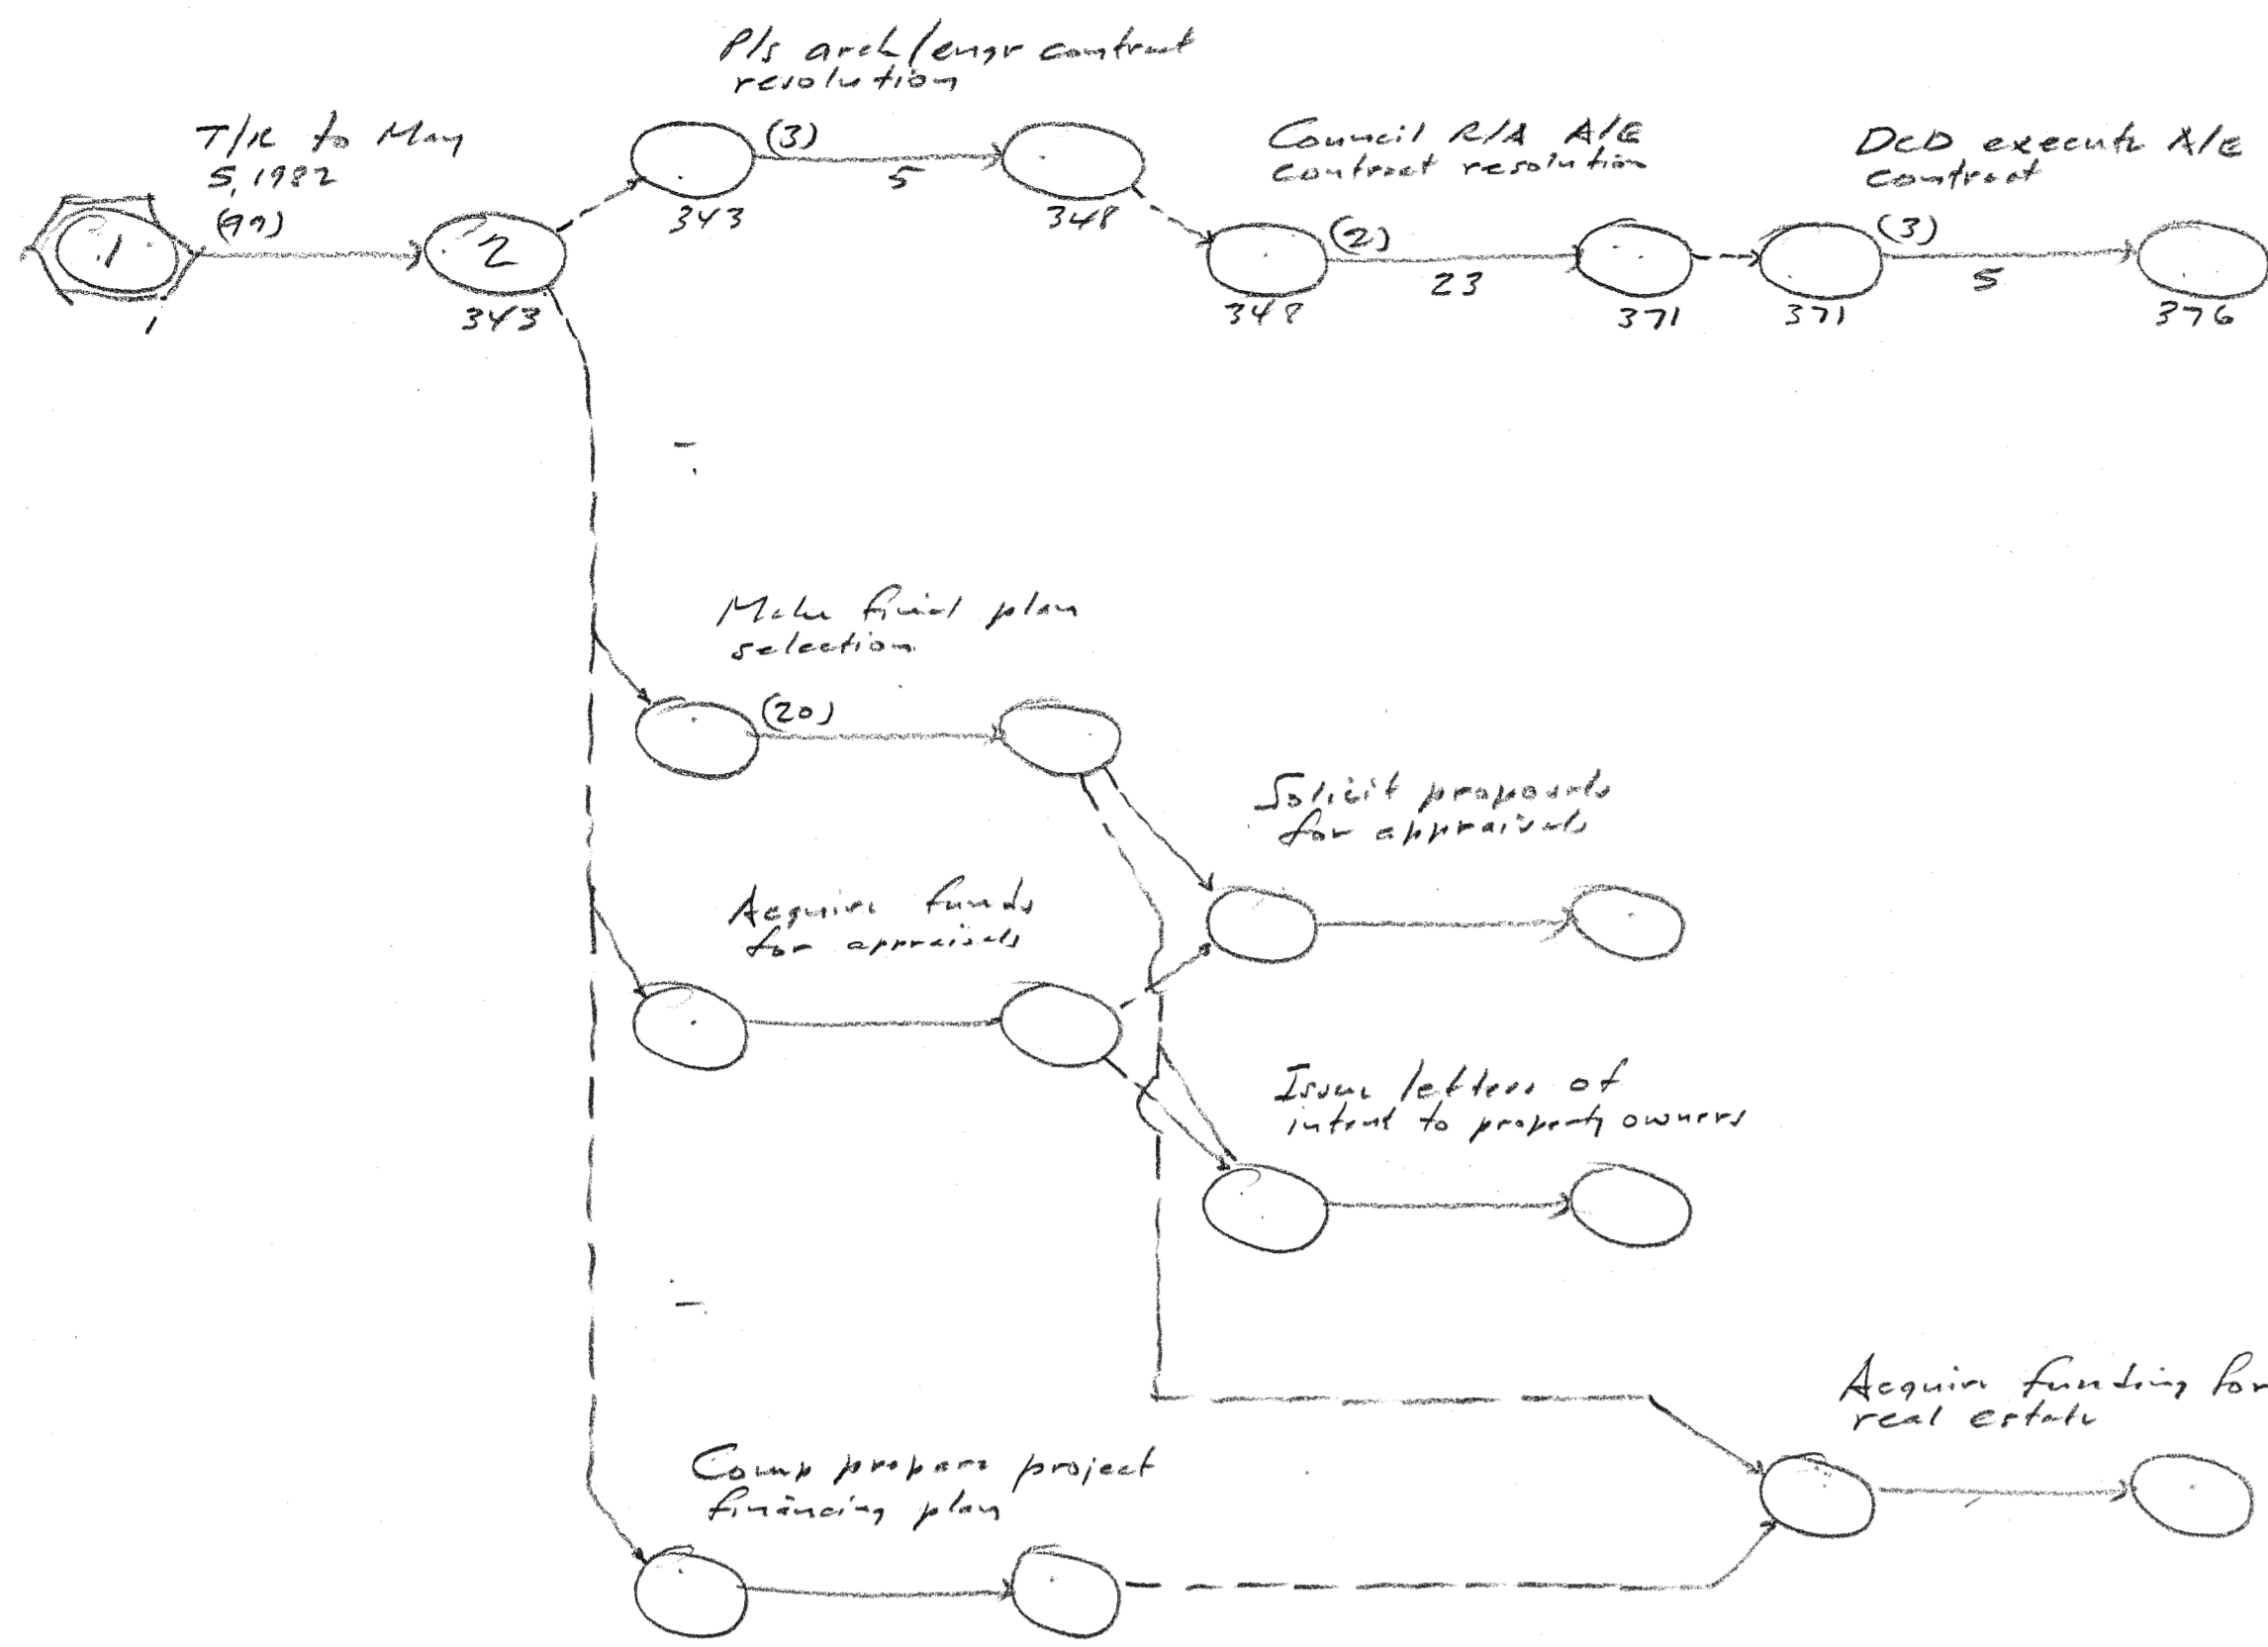 P/s arch/engr contract
resolution
T/R to May
5, 1982
(99)
1
1
2
343
(3)
5
343
348
Council R/A A/E
contract resolution
(2)
23
348
371
DCD execute A/E
contract
(3)
5
371
376
Make final plan
selection
(20)
Solicit proposals
for appraisals
Acquire funds
for appraisals
Issue letters of
intent to property owners
Acquire funding for
real estate
Comp prepare project
financing plan